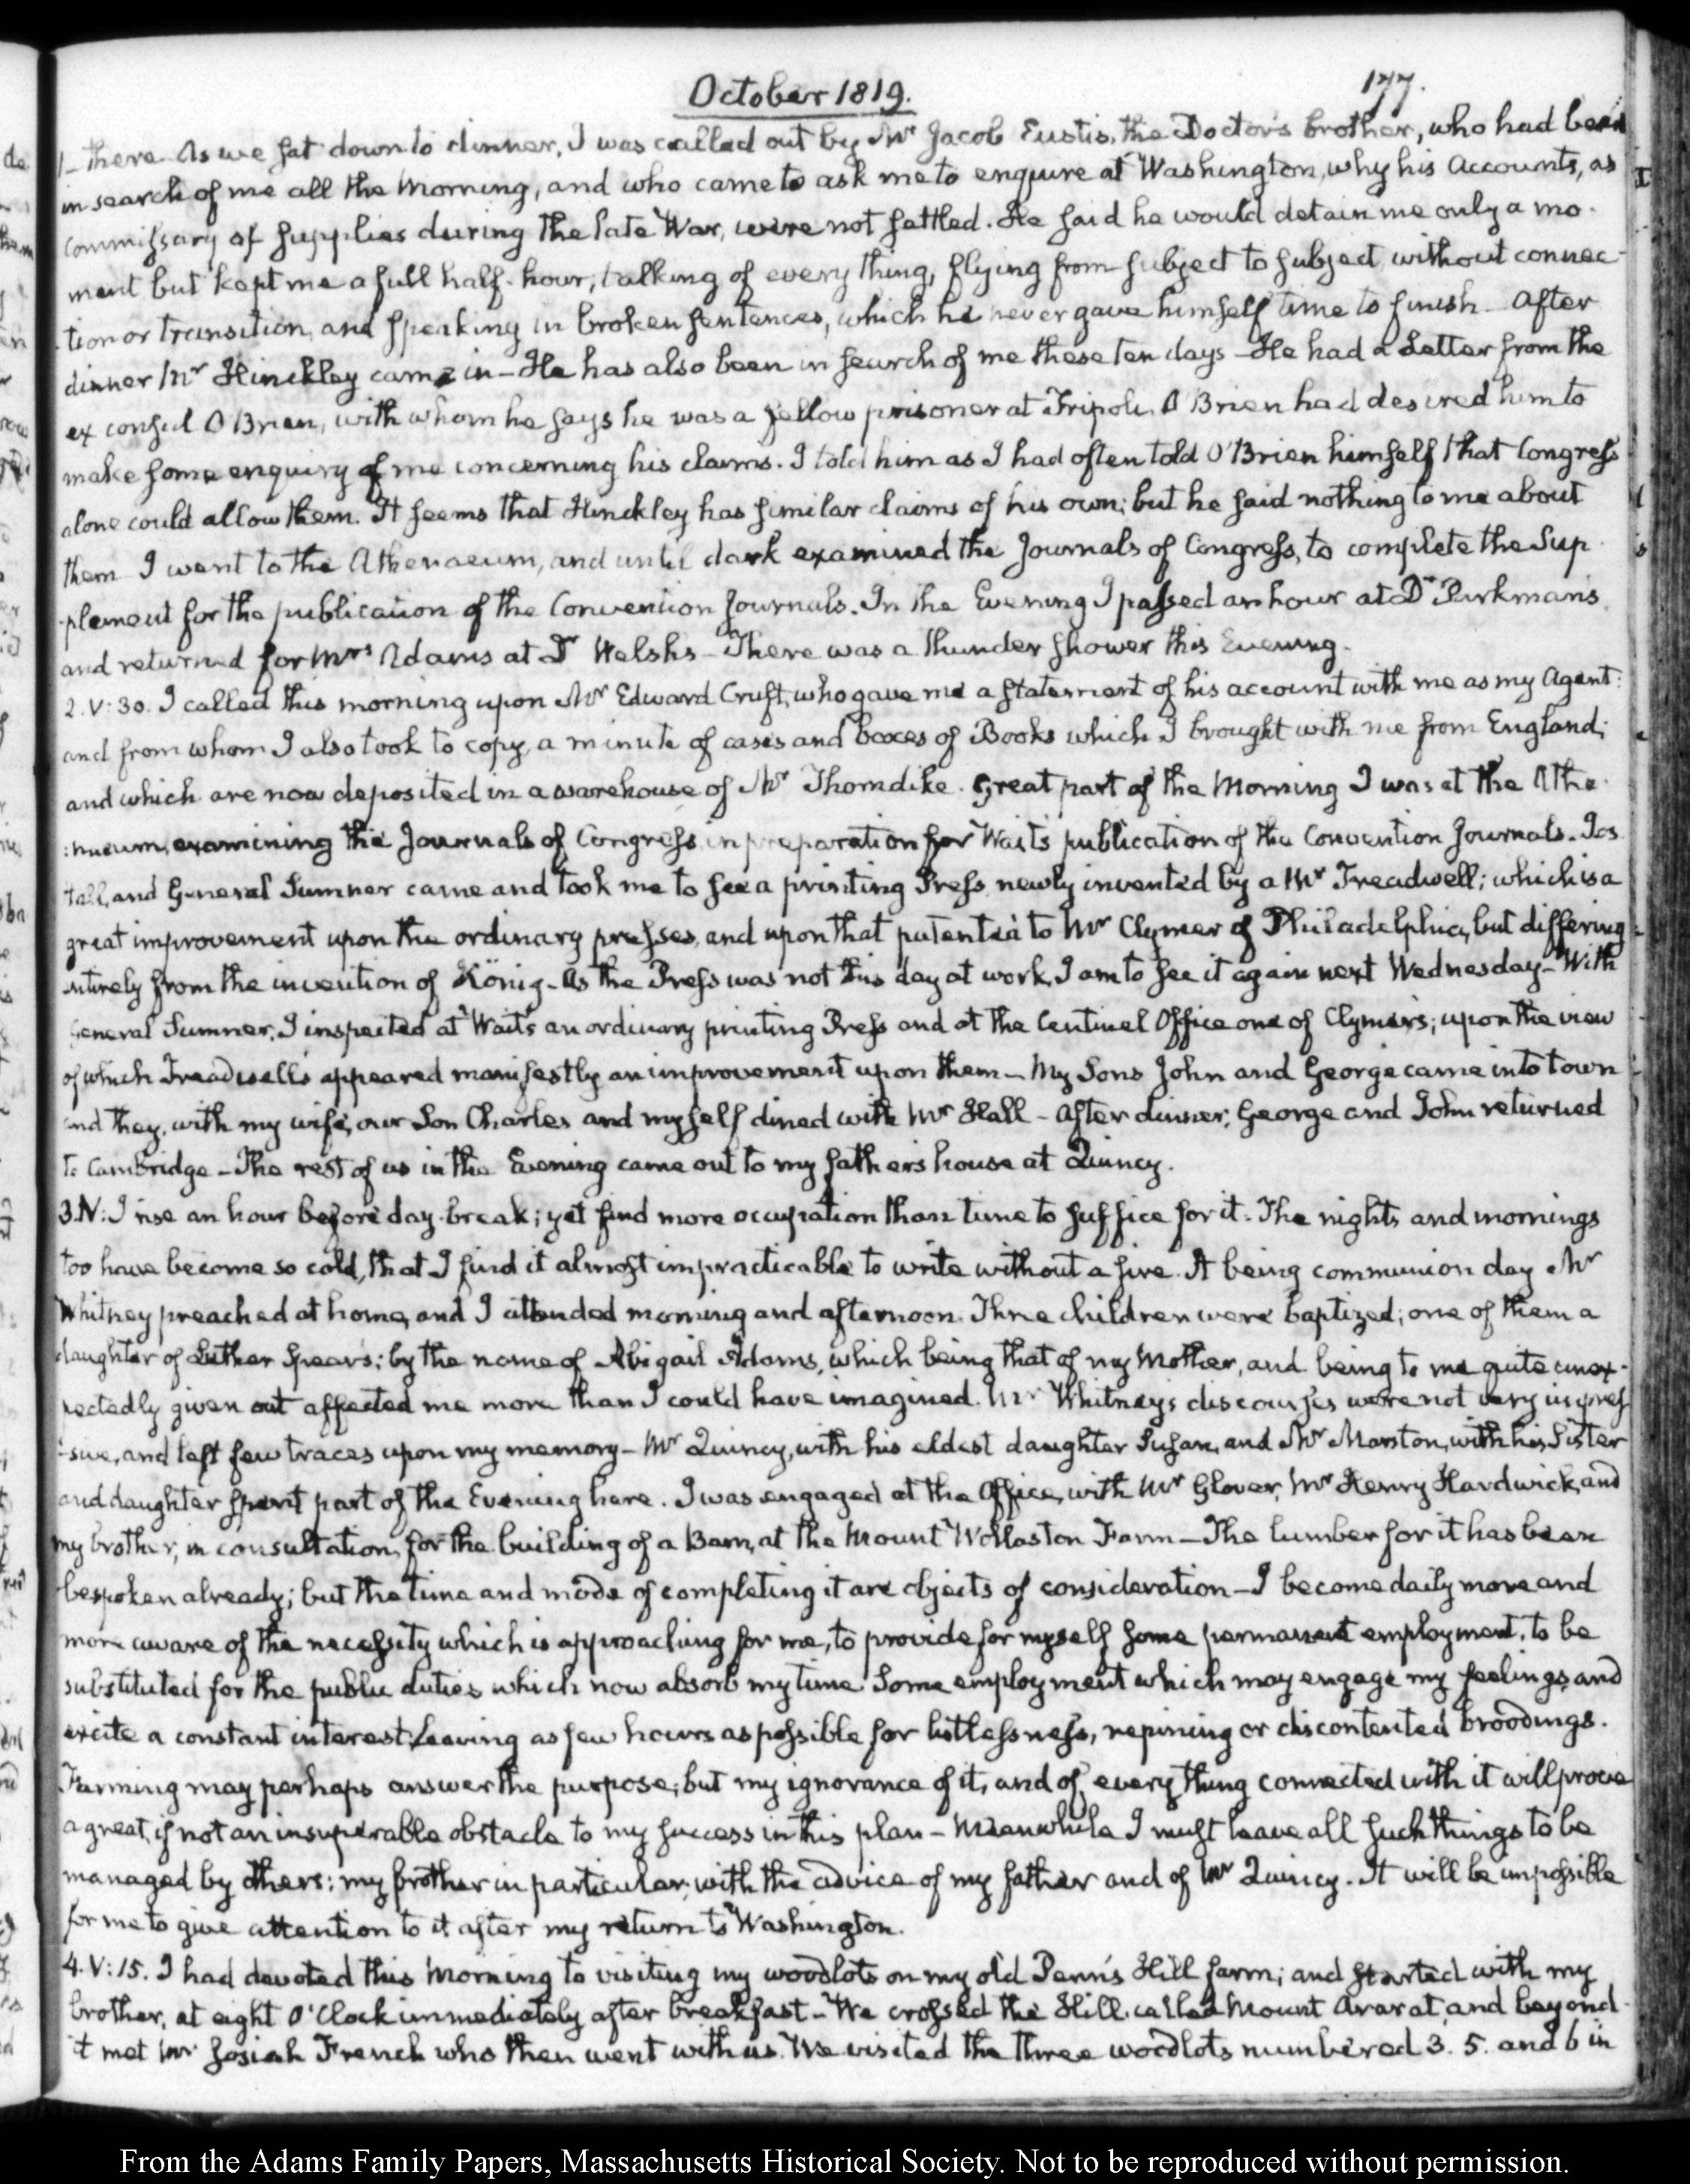 October 1819.
177.
1_ there. As we sat down to dinner, I was called out by Mr Jacob Eustis, the Doctor's brother, who had been
in search of me all the Morning, and who came to ask me to enquire at Washington, why his Accounts, as
Commissary of supplies during the late War, were not settled. He said he would detain me only a mo-
ment but kept me a full half-hour, talking of every thing, flying from subject to subject without connec-
tion or transition, and speaking in broken sentences, which he never gave himself time to finish_ After
dinner Mr Hinckley came in_ He has also been in search of me these ten days_ He had a Letter from the
ex consul O Brien, with whom he says he was a fellow prisoner at Tripoli. O Brien had desired him to
make some enquiry of me concerning his claims. I told him as I had often told O'Brien himself that Congress
alone could allow them. It seems that Hinckley has similar claims of his own; but he said nothing to me about
them I went to the Athenaeum, and until dark examined the Journals of Congress, to complete the Sup-
plement for the publication of the Convention Journals. In the Evening I passed an hour at Dr Parkman's,
and returned for Mrs Adams at Dr Welsh's_ There was a thunder shower this Evening.
2. V:30. I called this morning upon Mr Edward Cruft, who gave me a statement of his account with me as my Agent:
and from whom I also took to copy, a minute of cases and boxes of Books which I brought with me from England;
and which are now deposited in a warehouse of Mr Thorndike. Great part of the Morning I was at the Athe-
:naeum, examining the Journals of Congress, in preparation for Wait's publication of the Convention Journals.
tall, and General Sumner came and took me to see a printing Press, newly invented by a Mr Treadwell; which is a
great improvement upon the ordinary presses, and upon that patented to Mr Clymer of Philadelphia, but differing
entirely from the invention of König_ As the Press was not this day at work, I am to see it again next Wednesday_ With
General Sumner, I inspected at Wait's an ordinary printing Press and at the Centinel Office one of Clymer's; upon the view
of which Treadwell's appeared manifestly an improvement upon them_ My Sons John and George came into town
and they, with my wife, our Son Charles and myself dined with Mr Hall_ After dinner, George and John returned
to Cambridge_ The rest of us in the Evening came out to my father's house at Quincy.
3. IV: I rise an hour before day-break; yet find more occupation than time to suffice for it. The nights and mornings
too have become so cold, that I find it almost impracticable to write without a fire. It being communion day Mr
Whitney preached at home, and I attended morning and afternoon. Three children were baptized; one of them a
daughter of Luther Spear's; by the name of Abigail Adams, which being that of my Mother, and being to me quite unex-
pectedly given out affected me more than I could have imagined. Mr Whitney's discourses were not very impres
:sive, and left few traces upon my memory_ Mr Quincy, with his eldest daughter Susan, and Mr Marston, with his Sister
and daughter spent part of the Evening here. I was engaged at the Office, with Mr Glover, Mr Henry Hardwick, and
my brother, in consultation, for the building of a Barn, at the Mount Wollaston Farm_ The lumber for it has been
bespoken already; but the time and mode of completing it are objects of consideration_ I become daily more and
more aware of the necessity which is approaching for me, to provide for myself some permanent employment, to be
substituted for the public duties which now absorb my time. Some employment which may engage my feelings, and
excite a constant interest, leaving as few hours as possible for listlessness, repining or discontented broodings.
Farming may perhaps answer the purpose; but my ignorance of it, and of every thing connected with it will prove
a great, if not an insuperable obstacle to my success in this plan_ Meanwhile I must leave all such things to be
managed by others; my brother in particular, with the advice of my father and of Mr Quincy. It will be impossible
for me to give attention to it after my return to Washington.
4. V:15. I had devoted this Morning to visiting my woodlots on my old Penn's Hill farm; and started with my
brother, at eight O'Clock immediately after breakfast_ We crossed the Hill called Mount Ararat, and beyond
it met Mr Josiah French who then went with us. We visited the three woodlots numbered 3. 5. and 6 in
From the Adams Family Papers, Massachusetts Historical Society. Not to be reproduced without permission.